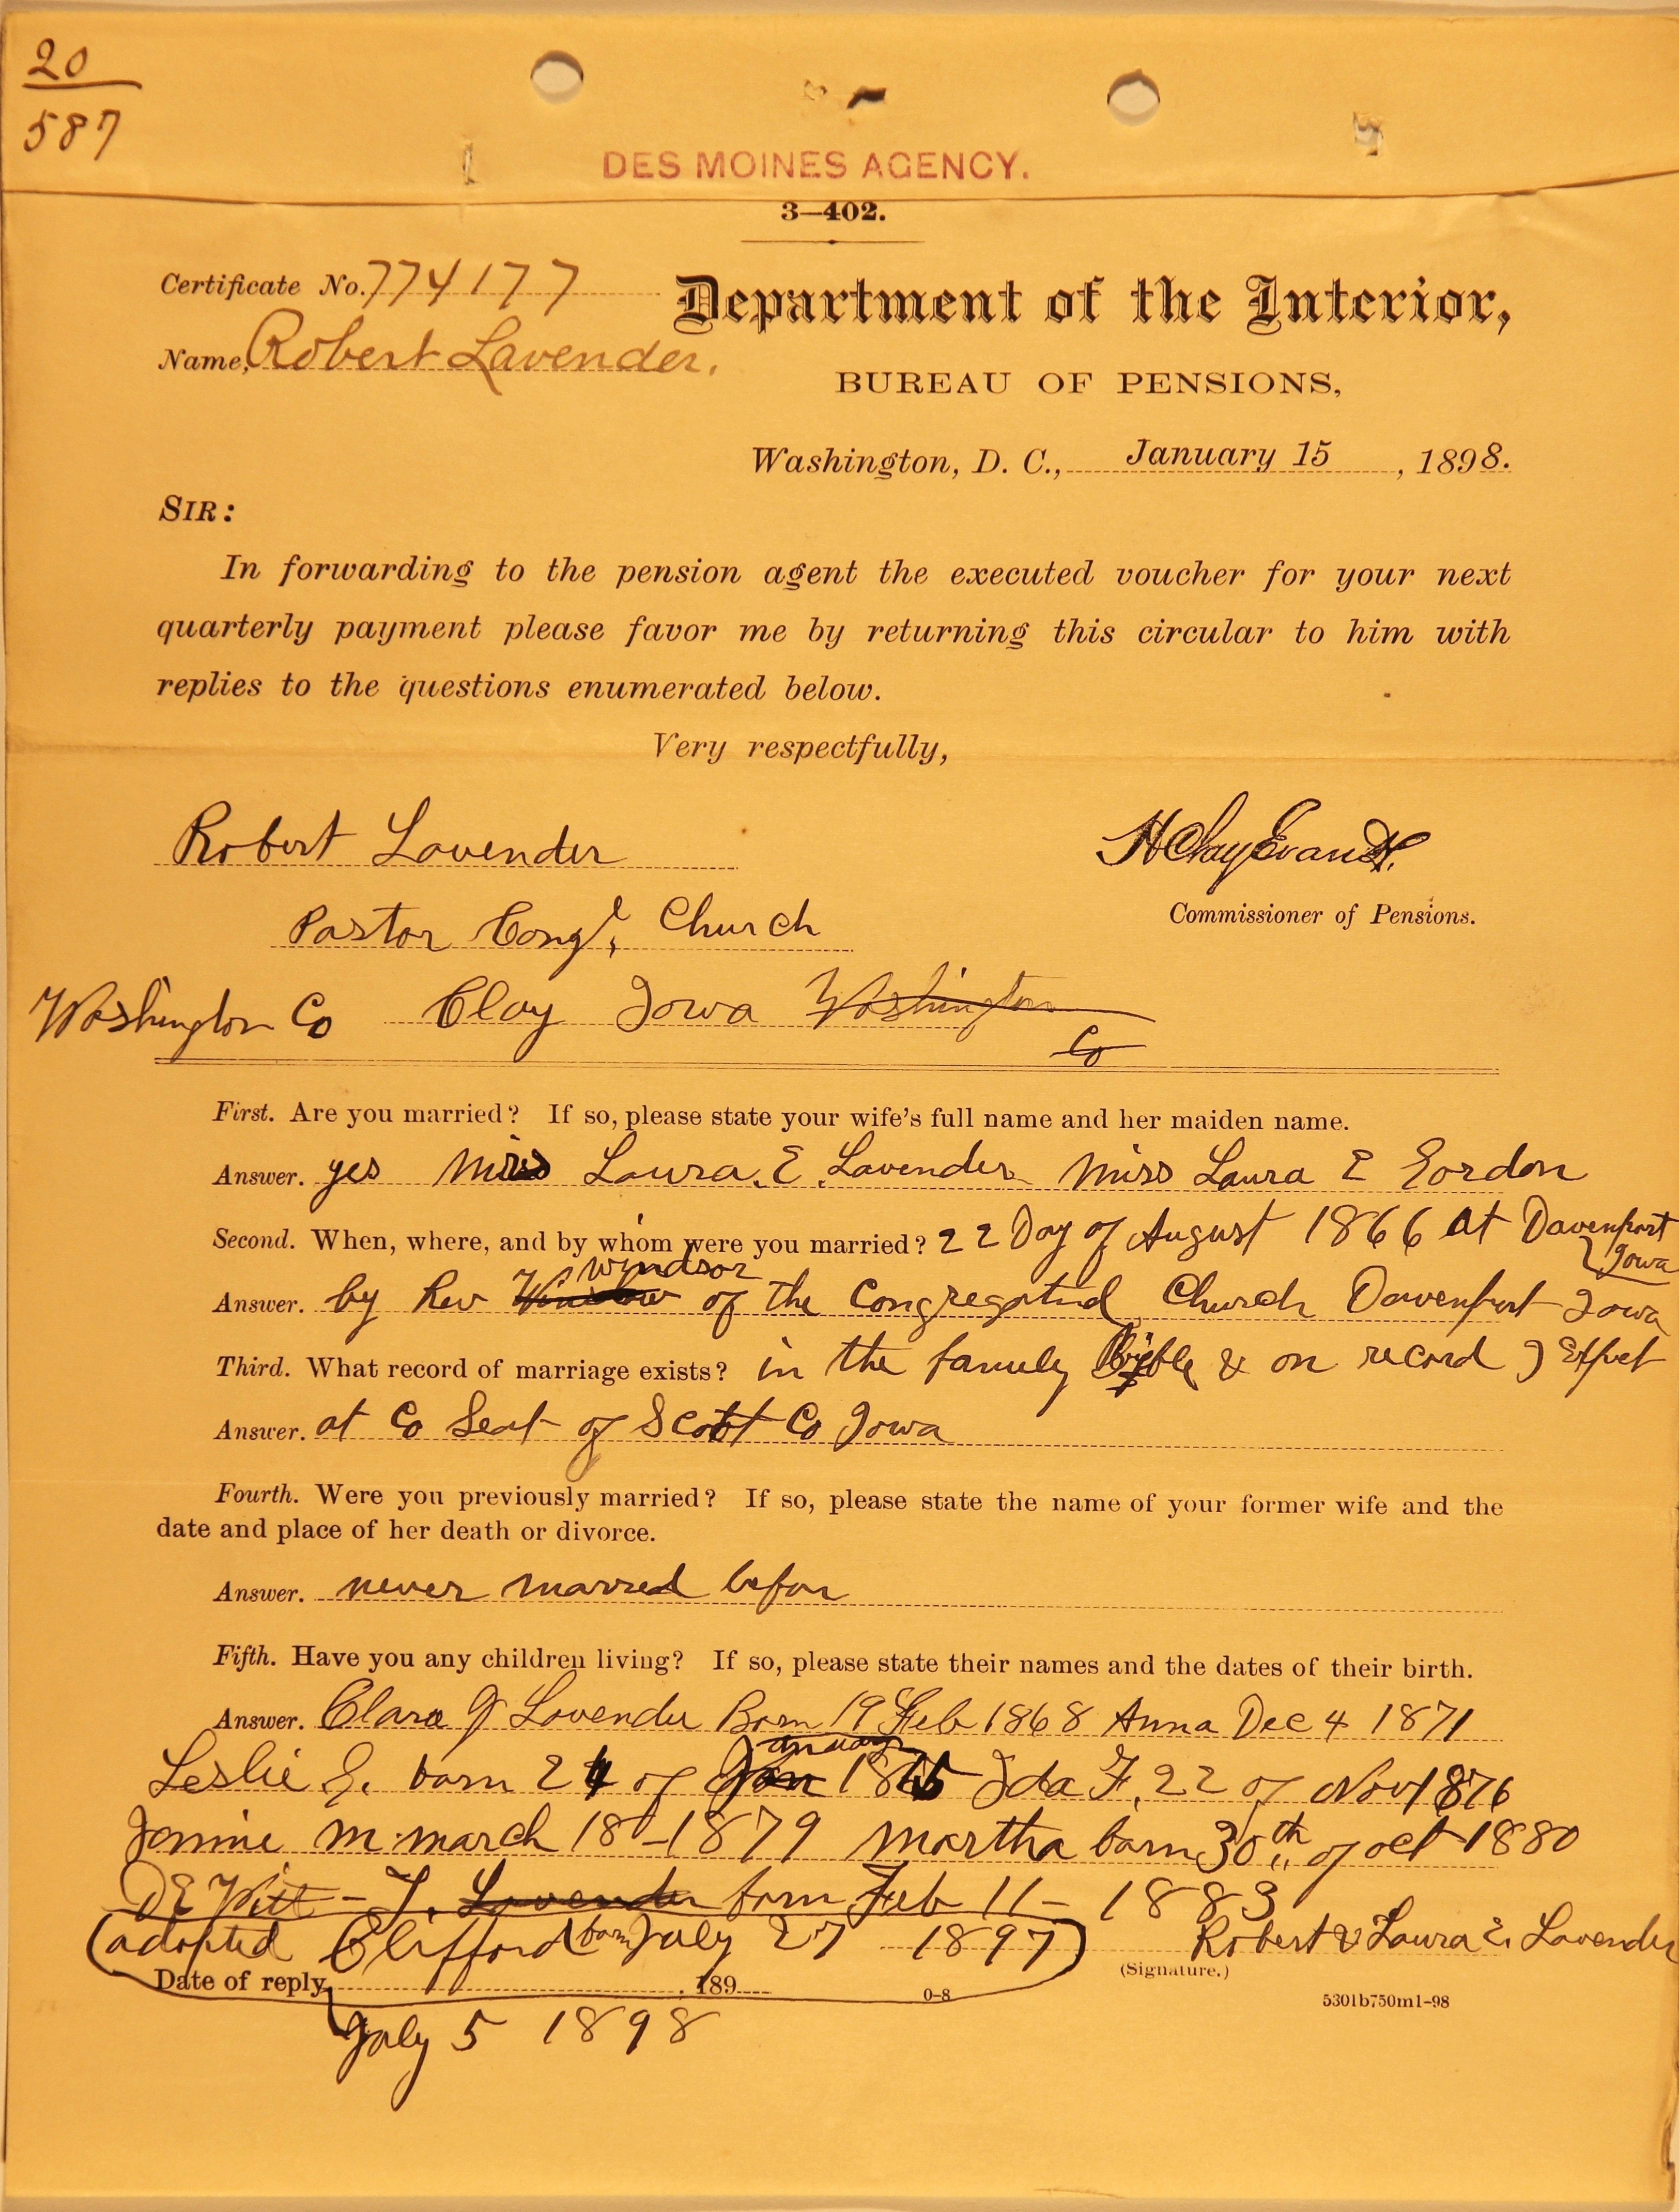 20
587
DES MOINES AGENCY.
3—402.
Certificate No. 774177
Department of the Interior,
Name, Robert Lavender.
BUREAU OF PENSIONS,
Washington, D. C., January 15, 1898.
SIR:
In forwarding to the pension agent the executed voucher for your next
quarterly payment please favor me by returning this circular to him with
replies to the questions enumerated below.
Very respectfully,
Robert Lavender
H Clay Evans
Pastor Congl, Church
Commissioner of Pensions.
Washington Co Clay Iowa Washington
Co
First. Are you married? If so, please state your wife's full name and her maiden name.
Answer. yes Mrs Laura. E. Lavender Miss Laura E Gordon
Second. When, where, and by whom were you married? 22 Day of August 1866 at Davenport
Iowa
windsor
Answer. by Rev of the Congregatnd Church Davenport Iowa
Third. What record of marriage exists? in the family Bible & on record
Answer. at Co Seat of Scott Co Iowa
Fourth. Were you previously married? If so, please state the name of your former wife and the
date and place of her death or divorce.
Answer. never married befor
Fifth. Have you any children living? If so, please state their names and the dates of their birth.
Answer. Clara G Lavender Born 19 Feb 1868 Anna Dec 4 1871
Leslie G. born 24 of January 1875 Ida F. 22 of Nov 1876
Jennie M. march 18-1879 Martha born 30th of oct 1880
DE Witt - T. Lavender born Feb 11 - 1883
(adopted Clifford born July 27 1897) Robert & Laura E. Lavender
(Signature.)
Date of reply, 189
0-8
5301b750m1-98
July 5 1898